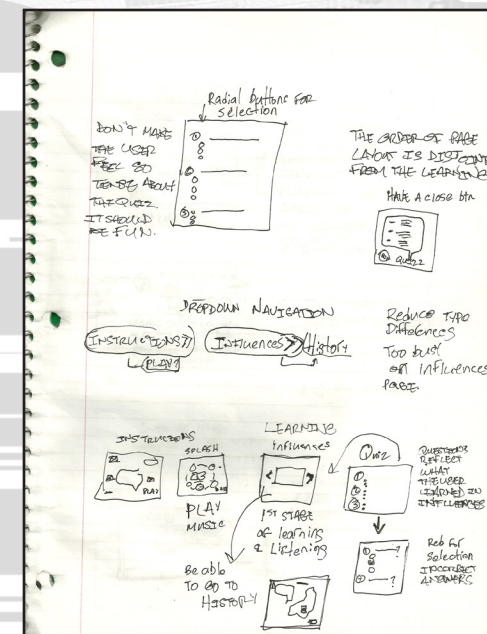 Radial buttons FOR
selection
DON'T MAKE
THE USER
FEEL SO
TENSE ABOUT
THE QUIZ.
IT SHOULD
BE FUN.
①
②
③
THE ORDER OF PAGE
LAYOUT IS
FROM THE LEARNING
HAVE A close btn
quizz
DROPDOWN NAVIGATION
INSTRUCTIONS
PLAY?
INFluENCES
History
Reduce TYPE
Differences
TOO busy
on Influences
PAGE.
INSTRUCTIONS
PLAY
SPLASH
PLAY
MUSIC
LEARNING
Influenses
1ST STAGE
of learning
& Listening
Be able
TO GO TO
HISTORY
Quiz
①
②
③
QUESTIONS
REFLECT
WHAT
THE USER
LEARNED IN
INFLUENCES
① ?
② ?
Red for
Selection
INCORRECT
ANSWERS